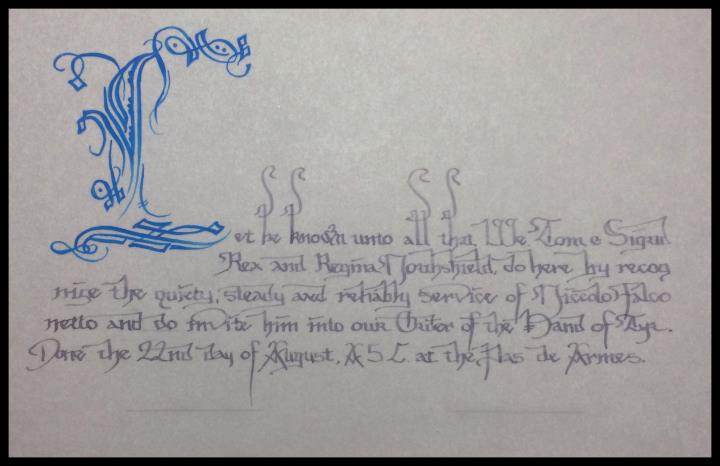 Let be known unto all that, We Tom & Sigrid
Rex and Regina Northshield, do here by recog
nize the quiety, steady and reliably service of Niccolo Falco
netto and do invite him into our Order of the Hand of Tyr.
Done the 22nd day of August, A S L at the Pas de Armes.